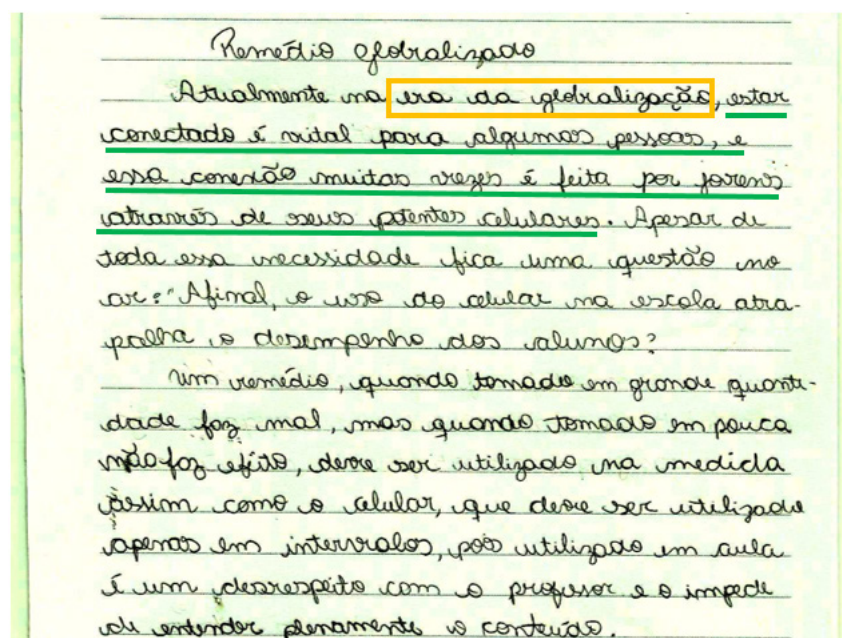 Remédio globalizado
Atualmente na era da globalização, estar
conectado é vital para algumas pessoas, e
essa conexão muitas vezes é feita por jovens
através de seus potentes celulares. Apesar de
toda essa necessidade fica uma questão no
ar: "Afinal, o uso do celular na escola atra-
palha o desempenho dos alunos?
Um remédio, quando tomado em grande quanti-
dade faz mal, mas quando tomado em pouca
não faz efeito, deve ser utilizado na medida
assim como o celular, que deve ser utilizado
apenas em intervalos, pois utilizado em aula
é um desrespeito com o professor e o impede
de entender plenamente o conteúdo.